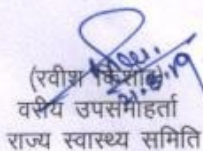 (रवीश किशोर)
21.8.19
वरीय उपसमाहर्ता
राज्य स्वास्थ्य समिति